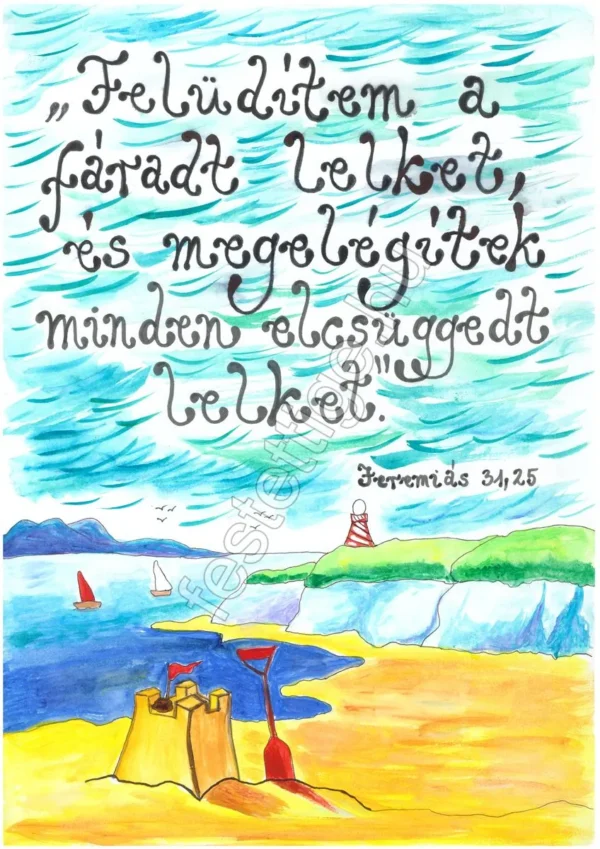 „Felüdítem a
fáradt lelket,
és megelégítek
minden elcsüggedt
lelket".
Jeremiás 31,25
festettige.hu